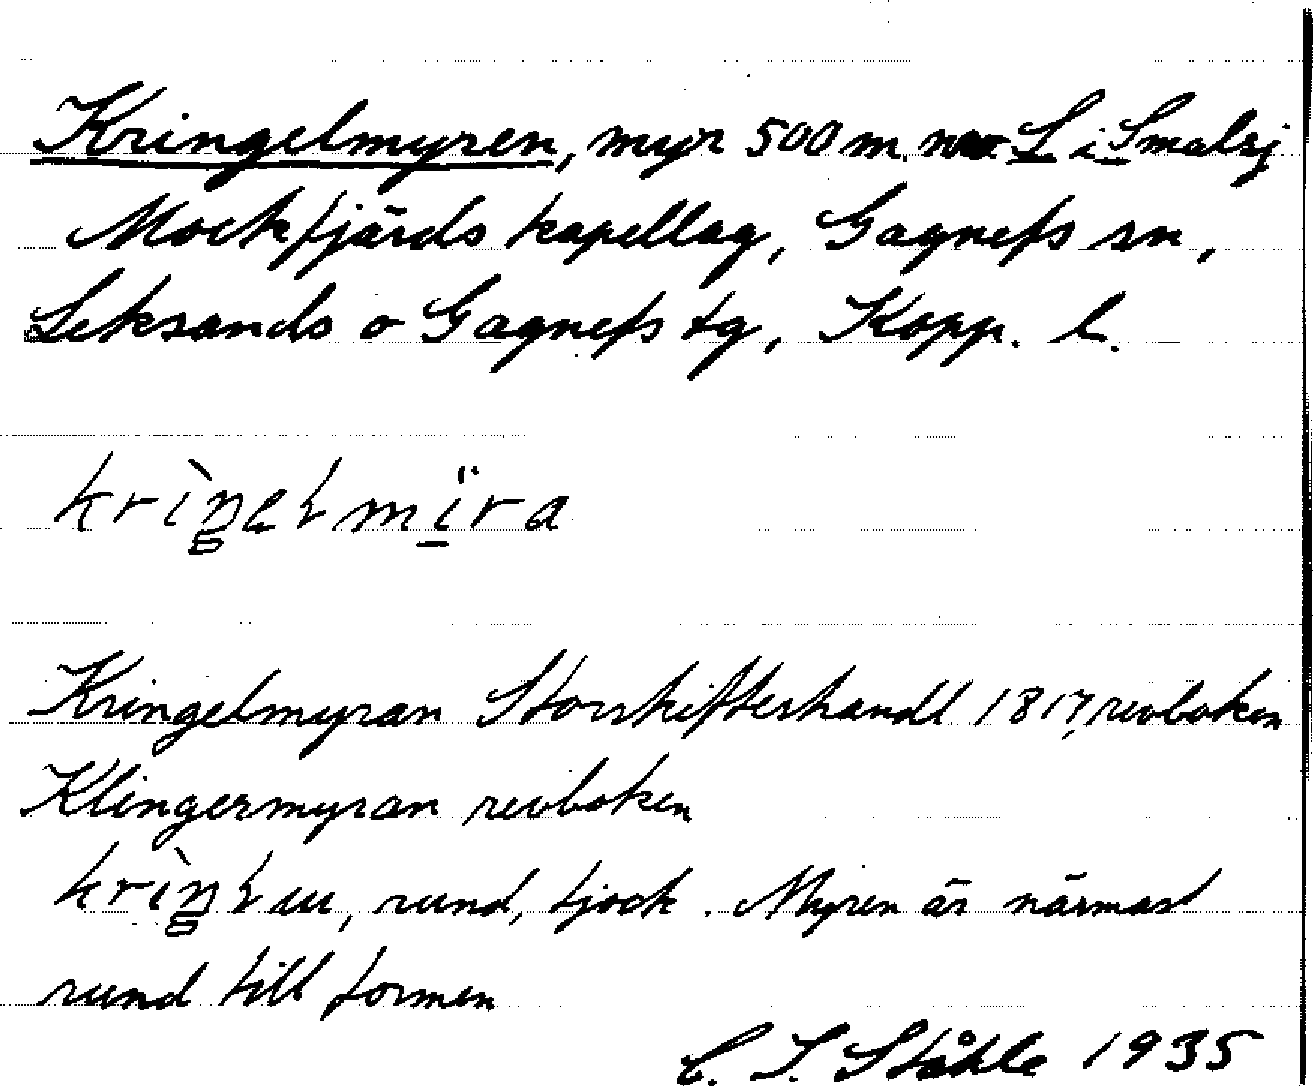 Kringelmyren, myr 500 m. nv L i Smalsj
Mockfjärds kapellag, Gagnefs sn,
Leksands o Gagnefs tg, Kopp. l.
Kringelmyran Storskifteshandl 1817, revboken
Klingermyran revboken
rund, tjock. Myren är närmast
rund till formen
C. I. Ståhle 1935